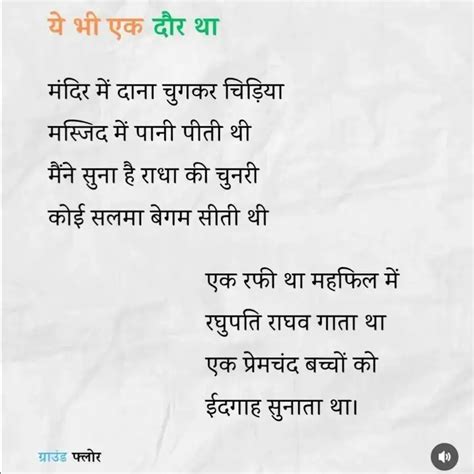 ये भी एक दौर था
मंदिर में दाना चुगकर चिड़िया
मस्जिद में पानी पीती थी
मैंने सुना है राधा की चुनरी
कोई सलमा बेगम सीती थी
एक रफी था महफिल में
रघुपति राघव गाता था
एक प्रेमचंद बच्चों को
ईदगाह सुनाता था।
ग्राउंड फ्लोर